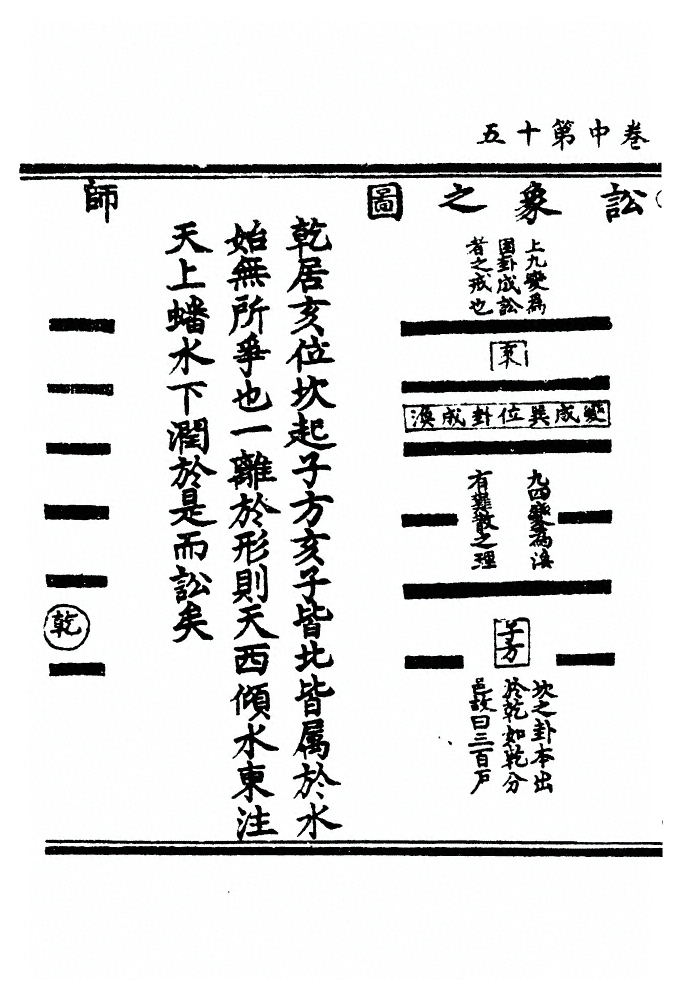 五十第中卷
訟象之圖
上九變為
困卦成訟
者之戒也
亥
變成巽位卦成渙
九四變為渙
有難散之理
子方
坎之卦本出
於乾如乾分
邑故曰三百戶
乾居亥位坎起子方亥子皆北皆属於水
始無所爭也一離於形則天西傾水東注
天上蟠水下潤於是而訟矣
師
乾